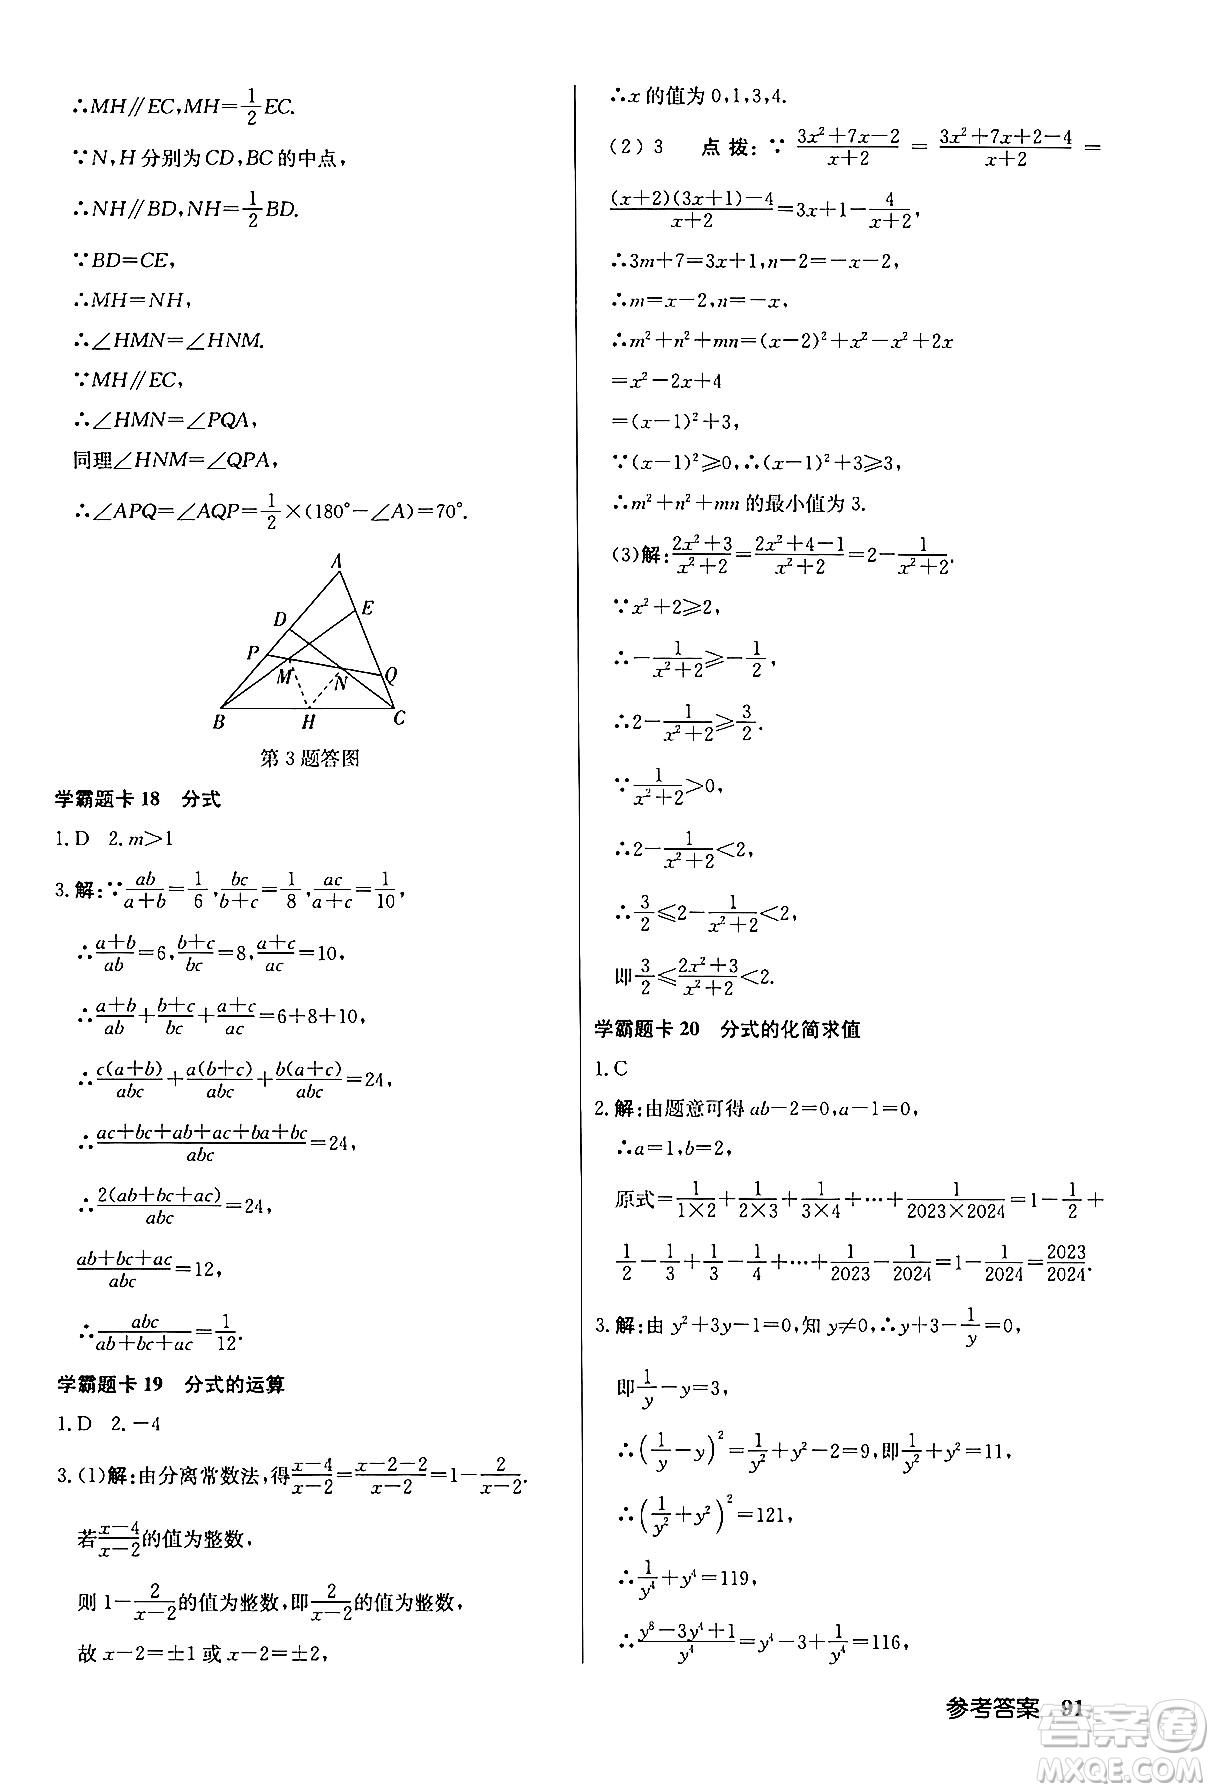 ∴MH∥EC,MH=1/2EC.
∵N,H分别为CD,BC的中点,
∴NH∥BD,NH=1/2BD.
∵BD=CE,
∴MH=NH,
∴∠HMN=∠HNM.
∵MH∥EC,
∴∠HMN=∠PQA,
同理∠HNM=∠QPA,
∴∠APQ=∠AQP=1/2×(180°-∠A)=70°.
A
E
D
P
M
N
Q
B H C
第3题答图
学霸题卡18 分式
1.D 2.m>1
3.解:∵ab/(a+b)=1/6,bc/(b+c)=1/8,ac/(a+c)=1/10,
∴(a+b)/ab=6,(b+c)/bc=8,(a+c)/ac=10,
∴(a+b)/ab+(b+c)/bc+(a+c)/ac=6+8+10,
∴c(a+b)/abc+a(b+c)/abc+b(a+c)/abc=24,
∴(ac+bc+ab+ac+ba+bc)/abc=24,
∴2(ab+bc+ac)/abc=24,
(ab+bc+ac)/abc=12,
∴abc/(ab+bc+ac)=1/12.
学霸题卡19 分式的运算
1.D 2.-4
3.(1)解:由分离常数法,得(x-4)/(x-2)=(x-2-2)/(x-2)=1-2/(x-2).
若(x-4)/(x-2)的值为整数,
则1-2/(x-2)的值为整数,即2/(x-2)的值为整数,
故x-2=±1或x-2=±2,
∴x的值为0,1,3,4.
(2)3 点拨:∵(3x²+7x-2)/(x+2)=(3x²+7x+2-4)/(x+2)=
((x+2)(3x+1)-4)/(x+2)=3x+1-4/(x+2),
∴3m+7=3x+1,n-2=-x-2,
∴m=x-2,n=-x,
∴m²+n²+mn=(x-2)²+x²-x²+2x
=x²-2x+4
=(x-1)²+3,
∵(x-1)²≥0,∴(x-1)²+3≥3,
∴m²+n²+mn的最小值为3.
(3)解:(2x²+3)/(x²+2)=(2x²+4-1)/(x²+2)=2-1/(x²+2).
∵x²+2≥2,
∴-1/(x²+2)≥-1/2,
∴2-1/(x²+2)≥3/2.
∵1/(x²+2)>0,
∴2-1/(x²+2)<2,
∴3/2≤2-1/(x²+2)<2,
即3/2≤(2x²+3)/(x²+2)<2.
学霸题卡20 分式的化简求值
1.C
2.解:由题意可得ab-2=0,a-1=0,
∴a=1,b=2,
原式=1/(1×2)+1/(2×3)+1/(3×4)+…+1/(2023×2024)=1-1/2+
1/2-1/3+1/3-1/4+…+1/2023-1/2024=1-1/2024=2023/2024.
3.解:由y²+3y-1=0,知y≠0,∴y+3-1/y=0,
即1/y-y=3,
∴(1/y-y)²=1/y²+y²-2=9,即1/y²+y²=11,
∴(1/y²+y²)²=121,
∴1/y⁴+y⁴=119,
∴(y⁸-3y⁴+1)/y⁴=y⁴-3+1/y⁴=116,
参考答案 91
答案圈
MXQE.COM